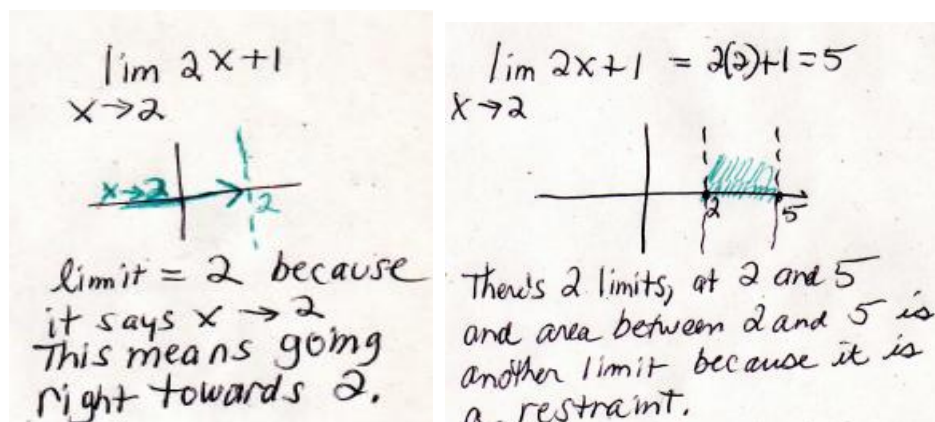 lim 2x+1
x→2
x→2
2
limit = 2 because
it says x → 2
This means going
right towards 2.
lim 2x+1 = 2(2)+1=5
x→2
2 5
There's 2 limits, at 2 and 5
and area between 2 and 5 is
another limit because it is
a restraint.